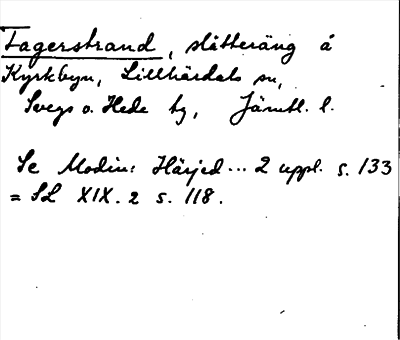 Fagerstrand, slåtteräng å
Kyrkbyn, Lillhärdals sn,
Svegs o. Hede tg, Jämtl. l.
Se Modin: Härjed... 2 uppl. s. 133
= SL XIX. 2 s. 118.